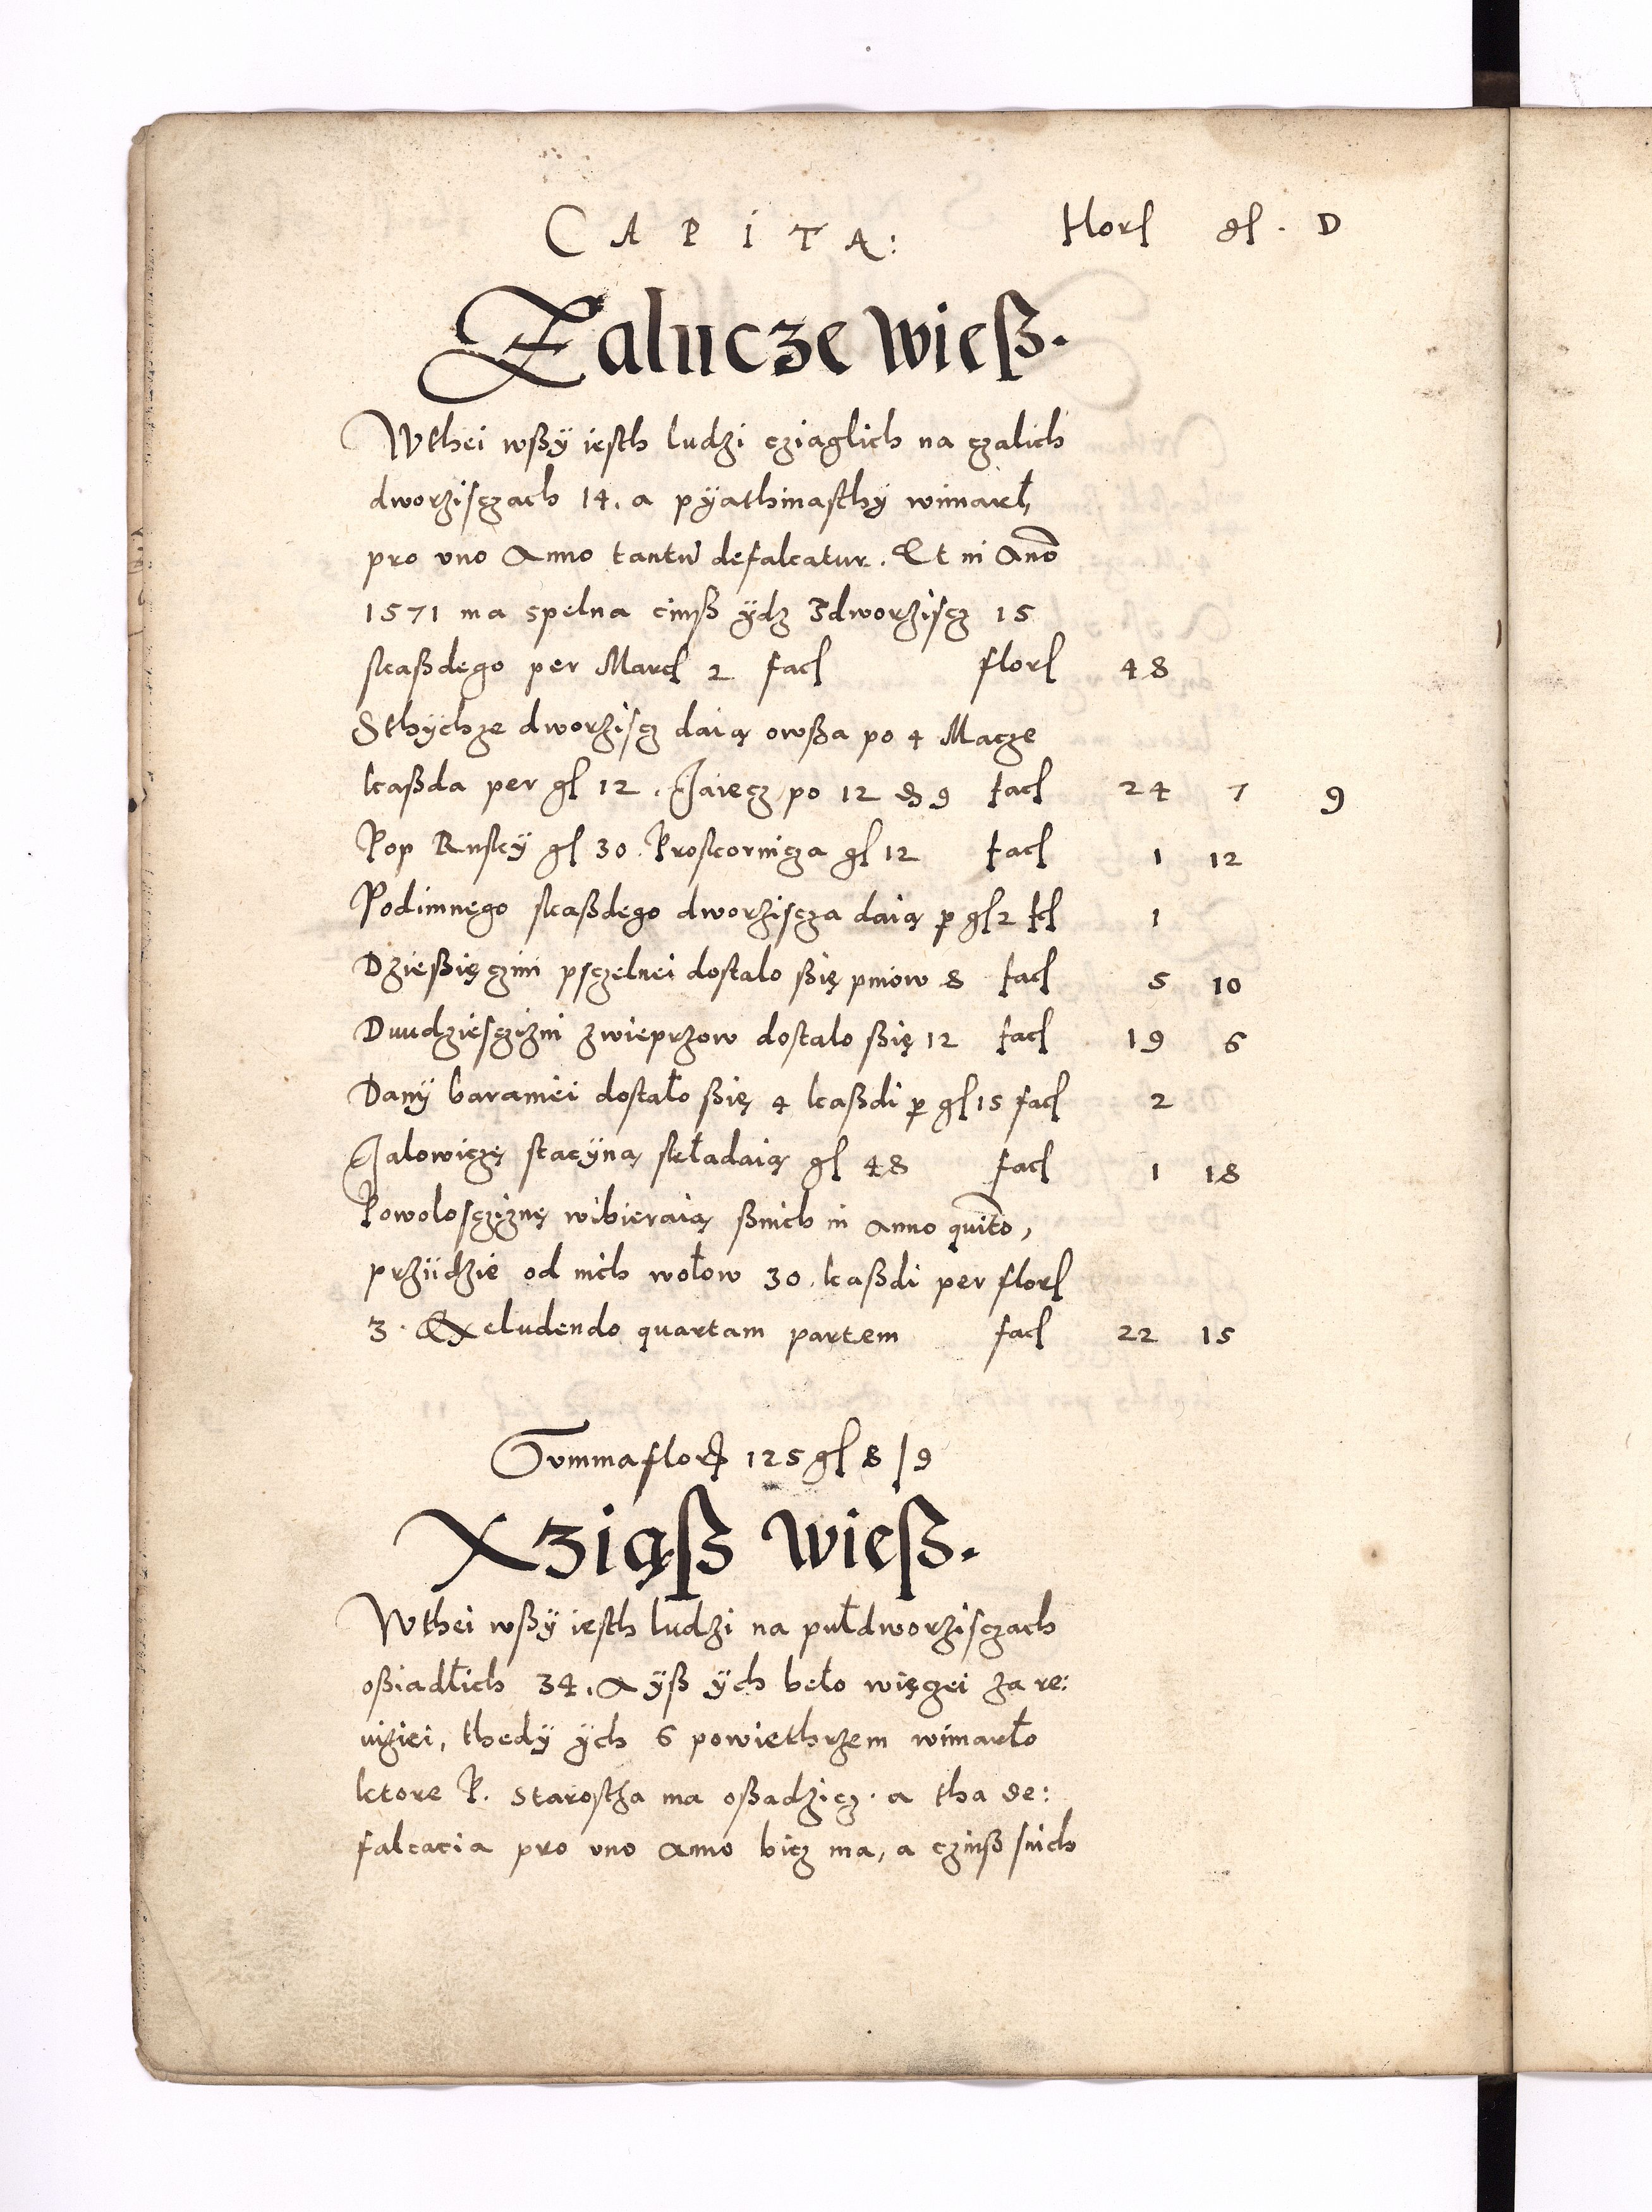 CAPITA: Flor gl. D
Zalucze wieß.
Wthei wßÿ iesth ludzi cziaglich na czalich
dworzisczach 14. a pÿathinasthÿ wimarł,
pro vno Anno tantū defalcatur. Et in Anō
1571 ma spelna cinß ÿdz Zdworzißcz 15
skaßdego per Marc 2 fac flor 48
Sthÿchze dworziscz daią owßa po 4 Macze
kaßda per gl 12. Jaiecz po 12 & 9 fac 24 7 9
Pop Ruskÿ gl 30. Proskornicza gl 12 fac 1 12
Podimnego skaßdego dworziscza daią p gl 2 fc 1
Dzießięczini psczelnei dostalo ßię pniow 8 fac 5 10
Dwudziesczizni zwieprzow dostalo ßię 12 fac 19 6
Danÿ baraniei dostało ßię 4 kaßdi p gl 15 fac 2
Jalowiczę stacÿną składaią gl 48 fac 1 18
Powoloscziznę wibieraią ßnich in anno quīto,
prziidzie od nich wołow 30. kaßdi per flor
3. Excludendo quartam partem fac 22 15
Summa flor 125 gl 8/9
Xziąß wieß.
Wthei wßÿ iesth ludzi na pułdworzisczach
oßiadłich 34. A ÿß ÿch beło więczei za re:
uiziei, thedÿ ÿch 6 powiethrzem wimarło
ktore P. Starosta ma oßadzicz. a tha de:
falcacia pro vno anno bicz ma, a czinß snich